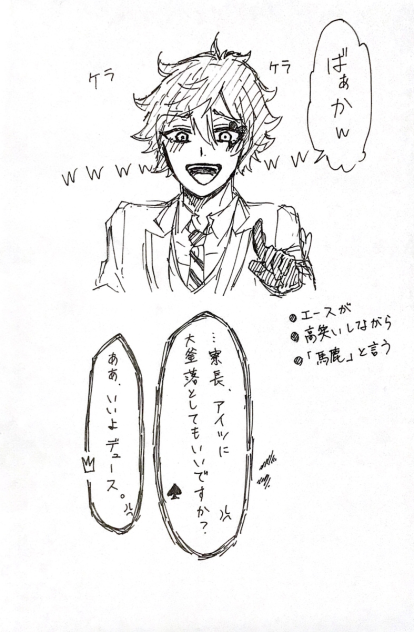 ばぁかw
ケラ
ケラ
wwwwww
ww
●エースが
●高笑いしながら
●「馬鹿」と言う
…寮長、アイツに
大釜落としてもいいですか?
♠
ああ、いいよデュース。